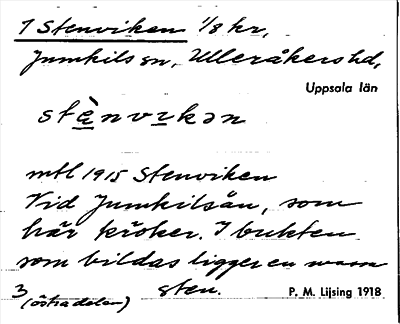 1 Stenviken 1/8 kr,
Jumkils sn, Ulleråkers hd,
Uppsala län
stènvikən
mtl 1915 Stenviken
Vid Jumkilsån, som
här kröker. I bukten
som bildas ligger en
sten.
P. M. Lijsing 1918
3 (östra delen)